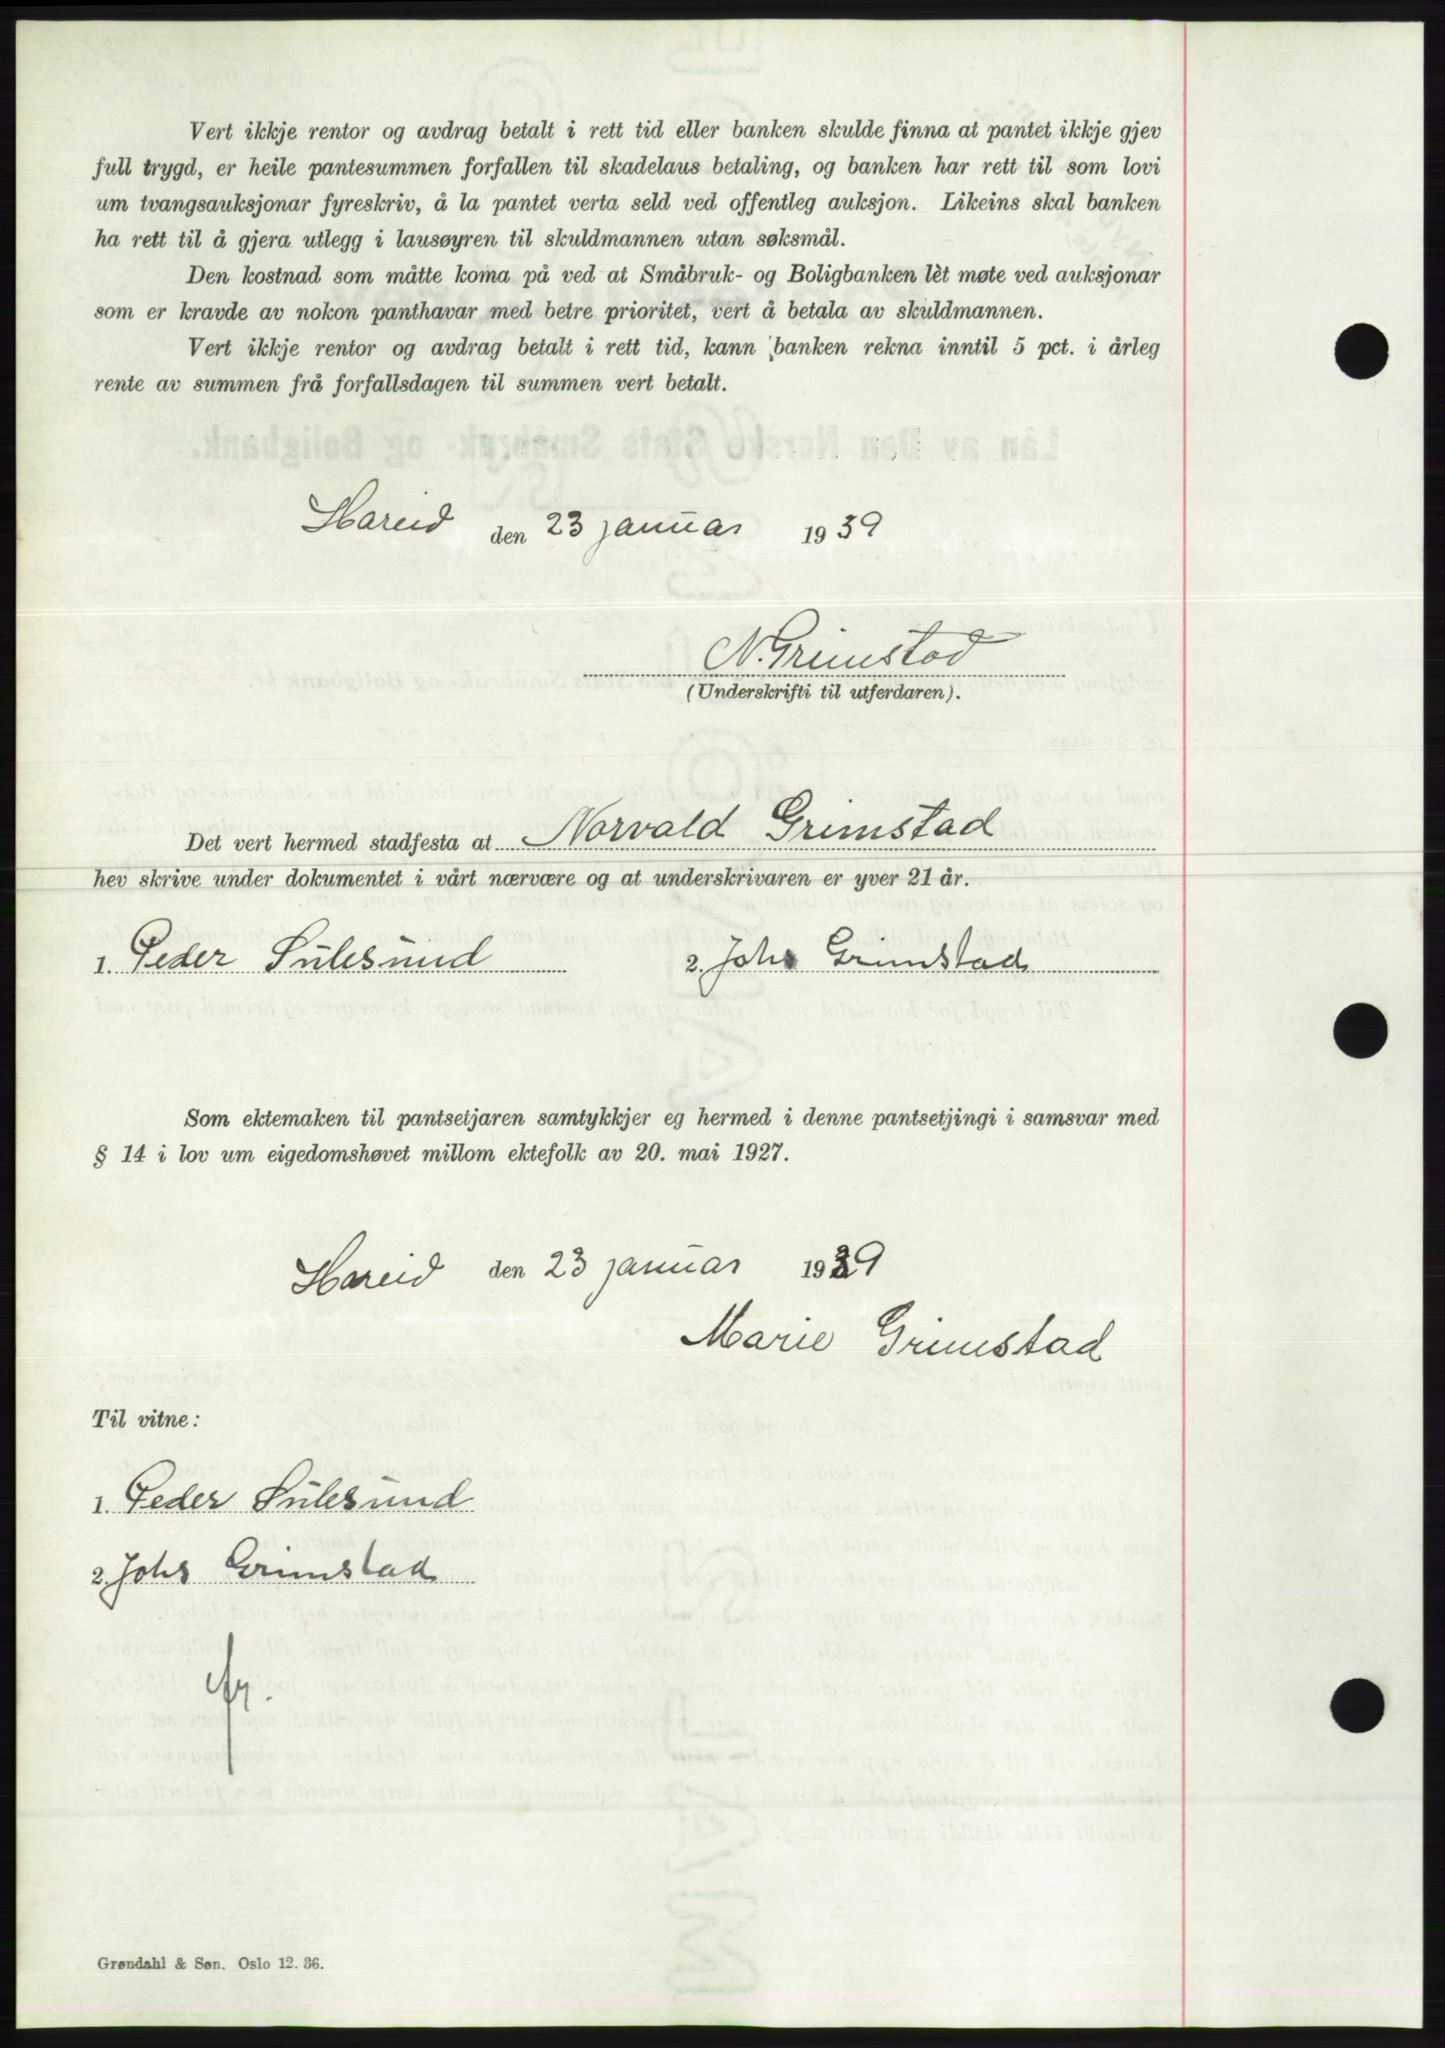 Vert ikkje rentor og avdrag betalt i rett tid eller banken skulde finna at pantet ikkje gjev
full trygd, er heile pantesummen forfallen til skadelaus betaling, og banken har rett til som lovi
um tvangsauksjonar fyreskriv, å la pantet verta seld ved offentleg auksjon. Likeins skal banken
ha rett til å gjera utlegg i lausøyren til skuldmannen utan søksmål.
Den kostnad som måtte koma på ved at Småbruk- og Boligbanken lèt møte ved auksjonar
som er kravde av nokon panthavar med betre prioritet, vert å betala av skuldmannen.
Vert ikkje rentor og avdrag betalt i rett tid, kann banken rekna inntil 5 pct. i årleg
rente av summen frå forfallsdagen til summen vert betalt.
Lån av Den Norske Stats Småbruk- og Boligbank.
Hareid den 23 januar 1939
N. Grimstad
(Underskrifti til utferdaren).
Det vert hermed stadfesta at Norvald Grimstad
hev skrive under dokumentet i vårt nærvære og at underskrivaren er yver 21 år.
1. Peder Sulesund 2. Johs Grimstad
Som ektemaken til pantsetjaren samtykkjer eg hermed i denne pantsetjingi i samsvar med
§ 14 i lov um eigedomshøvet millom ektefolk av 20. mai 1927.
Hareid den 23 januar 1939
Marie Grimstad
Til vitne:
1. Peder Sulesund
2. Johs Grimstad
Grøndahl & Søn. Oslo 12. 36.